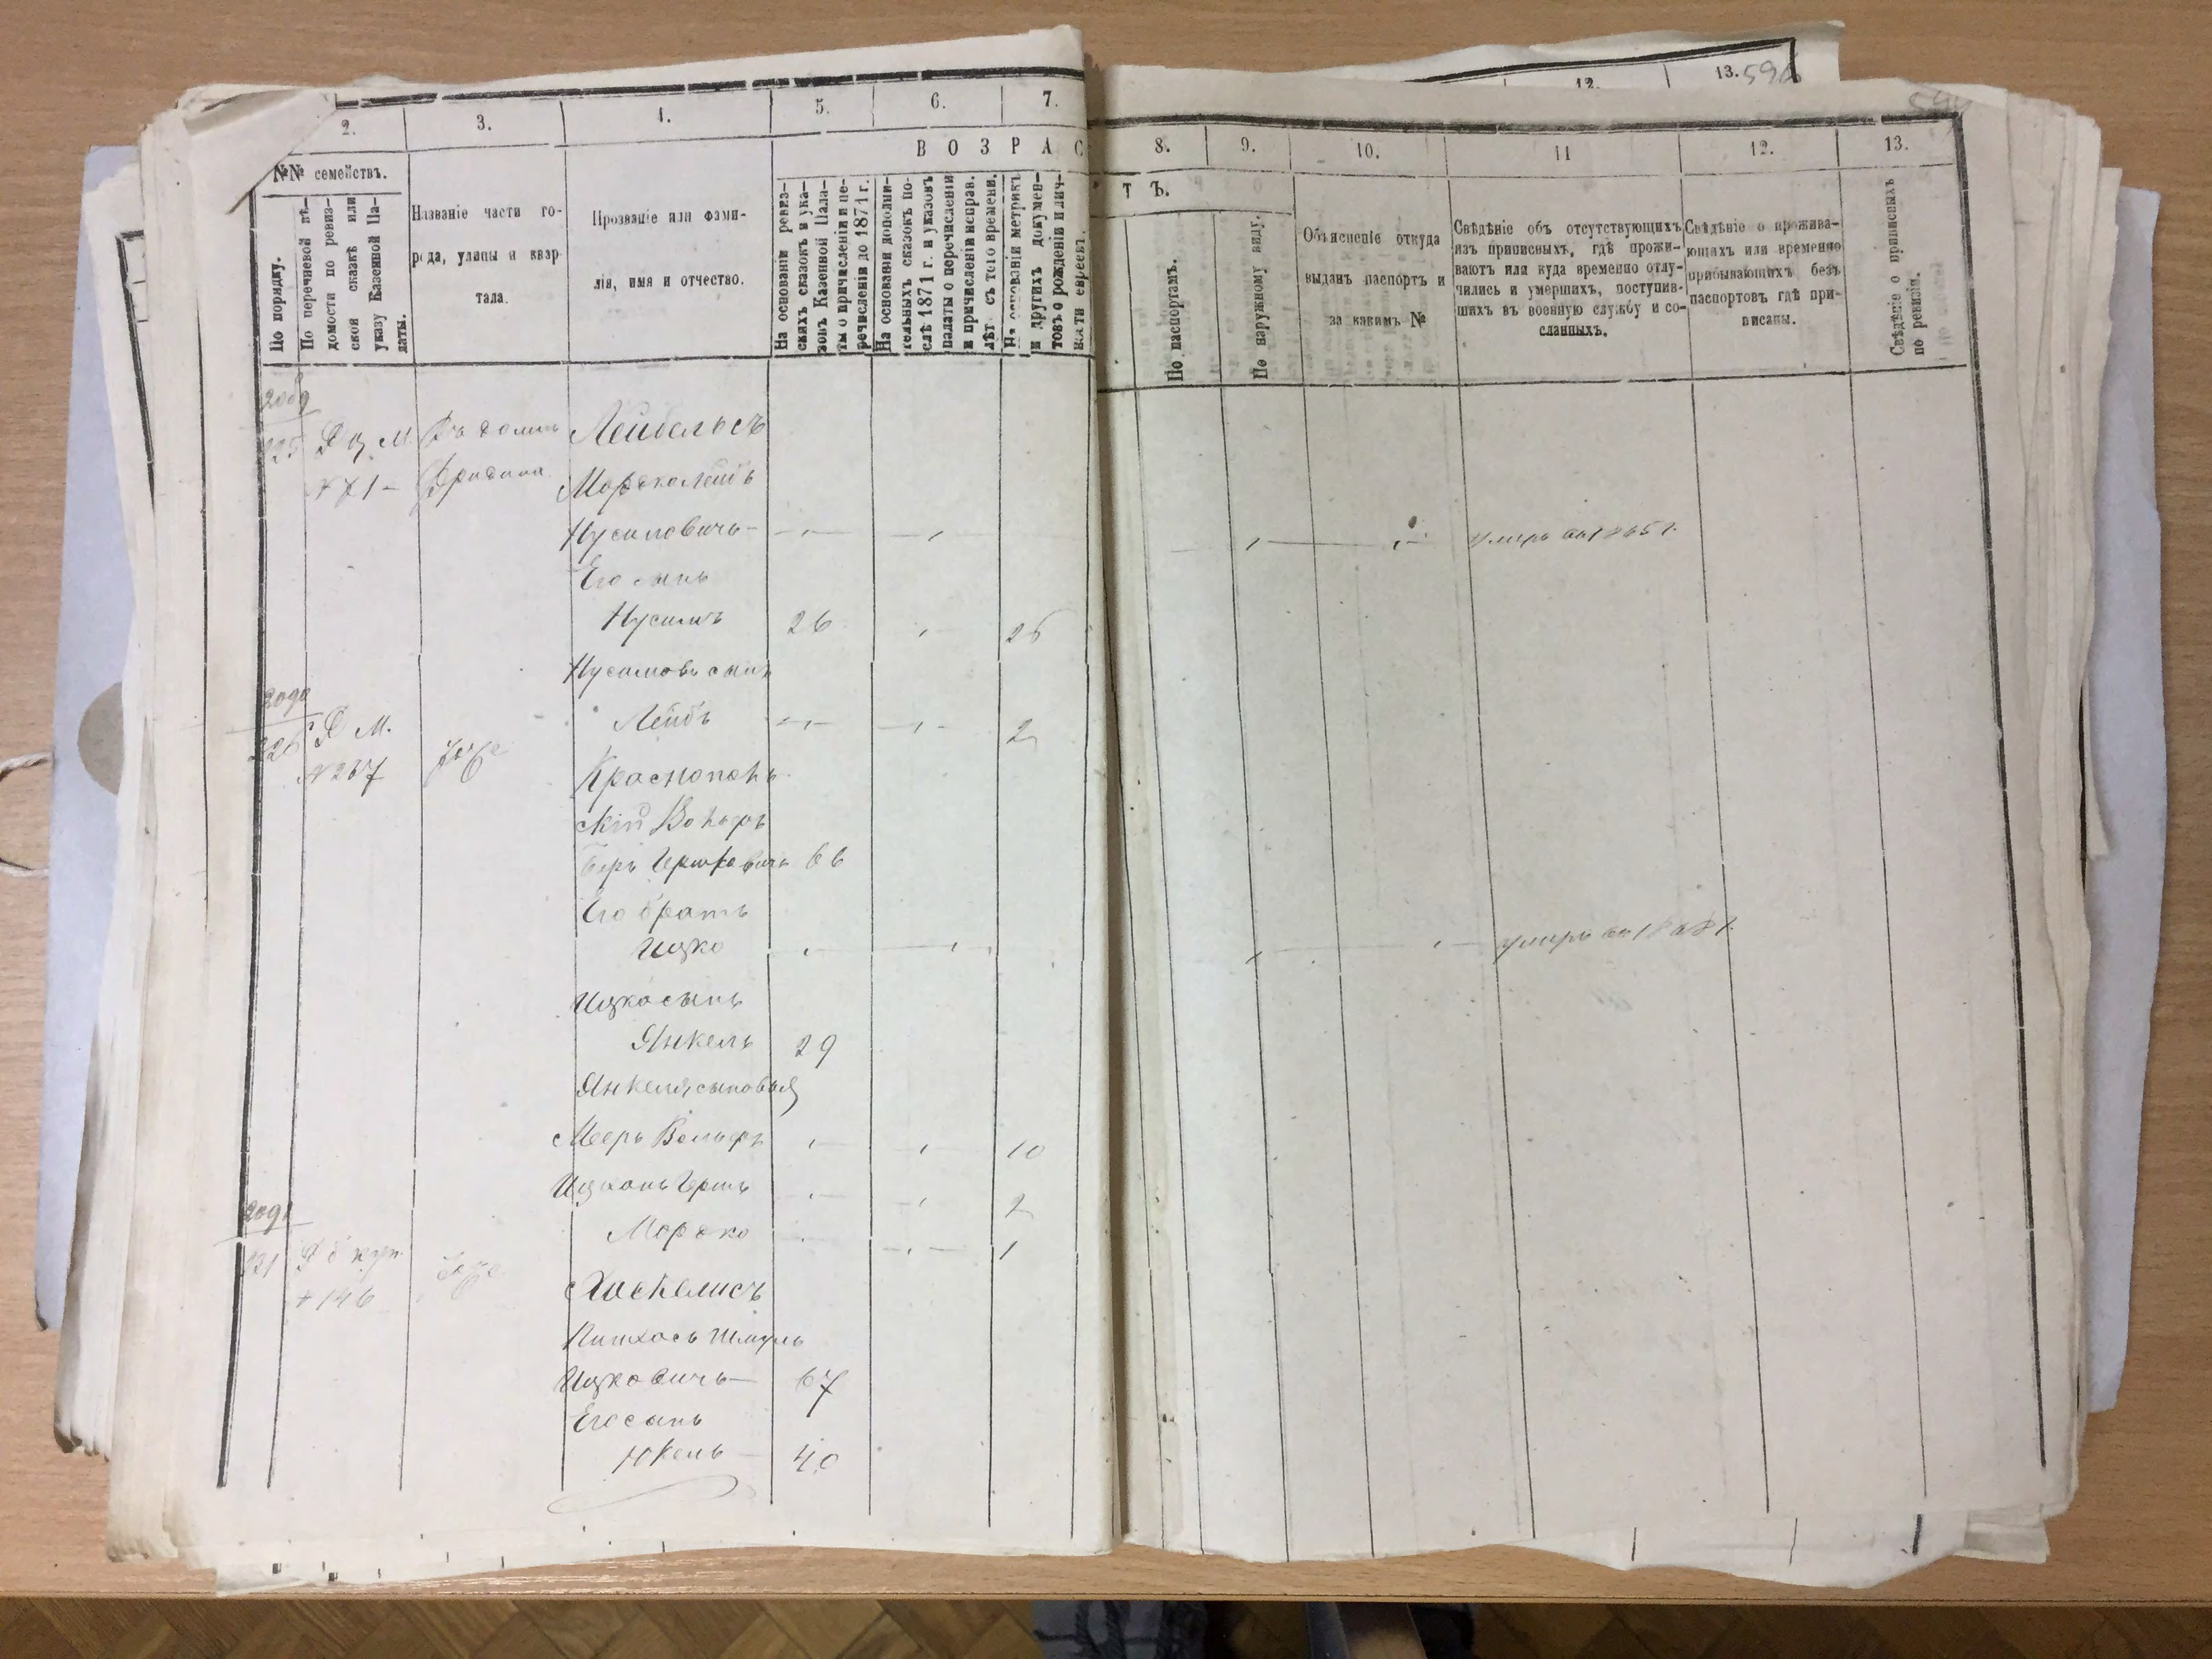 2.
3.
4.
5.
6.
7.
8.
9.
10.
11
12.
13.
12.
13. 596
В О З Р А С
Т Ъ.
№№ семействъ.
По порядку.
По перечневой вѣ-
домости по ревиз-
ской сказкѣ или
указу Казенной Па-
латы.
Названіе части го-
рода, улицы и квар
тала.
Прозваніе или фами-
лія, имя и отчество.
На основаніи ревиз-
скихъ сказокъ и ука-
зовъ Казенной Пала-
ты о причисленіи и пе-
речисленіи до 1871 г.
На основаніи дополни-
тельныхъ сказокъ по-
слѣ 1871 г. и указовъ
палаты о перечисленіи
и причисленіи исправ.
лѣт съ того времени.
На основаніи метрикъ
и другихъ докумен-
товъ о рожденіи и лич-
ности евреевъ.
По паспортамъ.
По наружному виду.
Объясненіе откуда
выданъ паспортъ и
за какимъ №
Свѣдѣніе объ отсутствующихъ
изъ приписныхъ, гдѣ прожи-
ваютъ или куда временно отлу-
чились и умершихъ, поступив-
шихъ въ военную службу и со-
сланныхъ.
Свѣдѣніе о прожива-
ющихъ или временно
прибывающихъ безъ
паспортовъ гдѣ при-
писаны.
Свѣдѣніе о приписныхъ
по ревизіи.
2089
225 М. Въ домѣ Лейбельсъ
№ 71 – Мордхолейбъ
Нусиновичь – умеръ въ 1865 г.
Его сынъ
Нусинъ 26 26
Нусиновъ сынъ
2090
226 М. Лейбъ 2
№ 267 Краснопол
скій Вольфъ
Беръ Гершковичъ 66
Его братъ
Ицко умеръ въ 1868 г.
Ицкосынъ
Янкель 29
Янкеля сыновья
Мееръ Вольфъ 10
Ицхокъ Гершъ 2
2091
Мордко 1
146 Хаскелисъ
Пинхосъ Шмуль
Ицковичь – 67
Его сынъ
Юкель 40